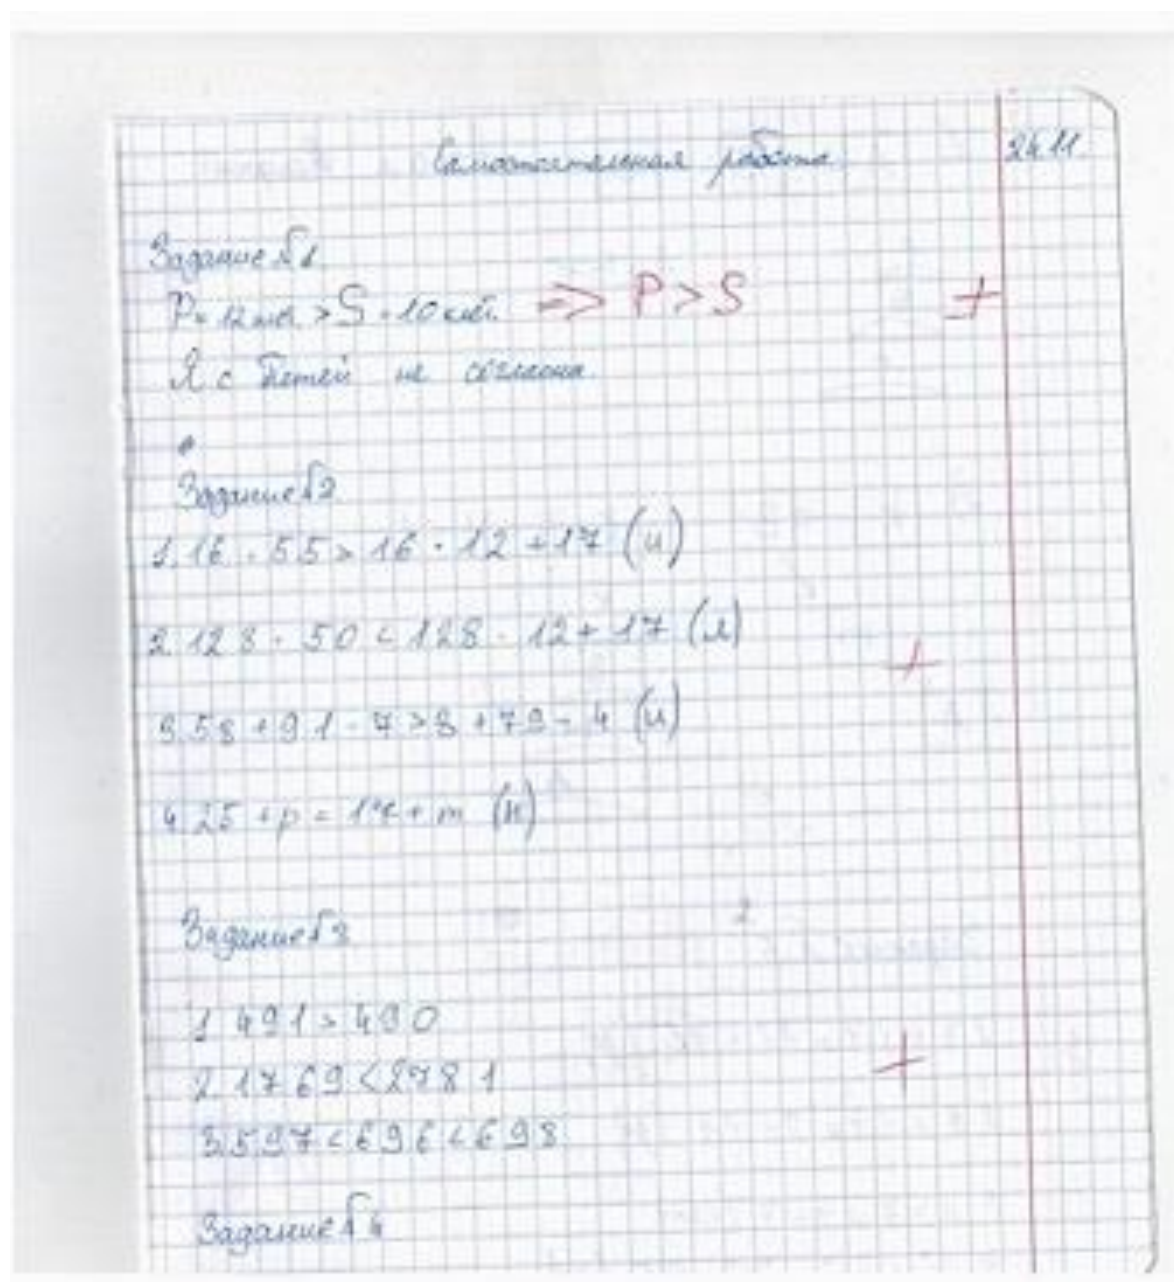 Самостоятельная работа. 24.11
Задание №1
P = 12 см. > S = 10 см. => P > S +
Я с Петей не согласна.
Задание №2
1. 16 · 55 > 16 · 12 + 17 (и)
2. 128 · 50 < 128 · 12 + 17 (л) +
3. 58 + 91 - 7 > 8 + 79 - 4 (и)
4. 25 + p = 17 + m (н)
Задание №3
1. 491 > 490
2. 1769 < 2781 +
3. 597 < 696 < 698
Задание №4